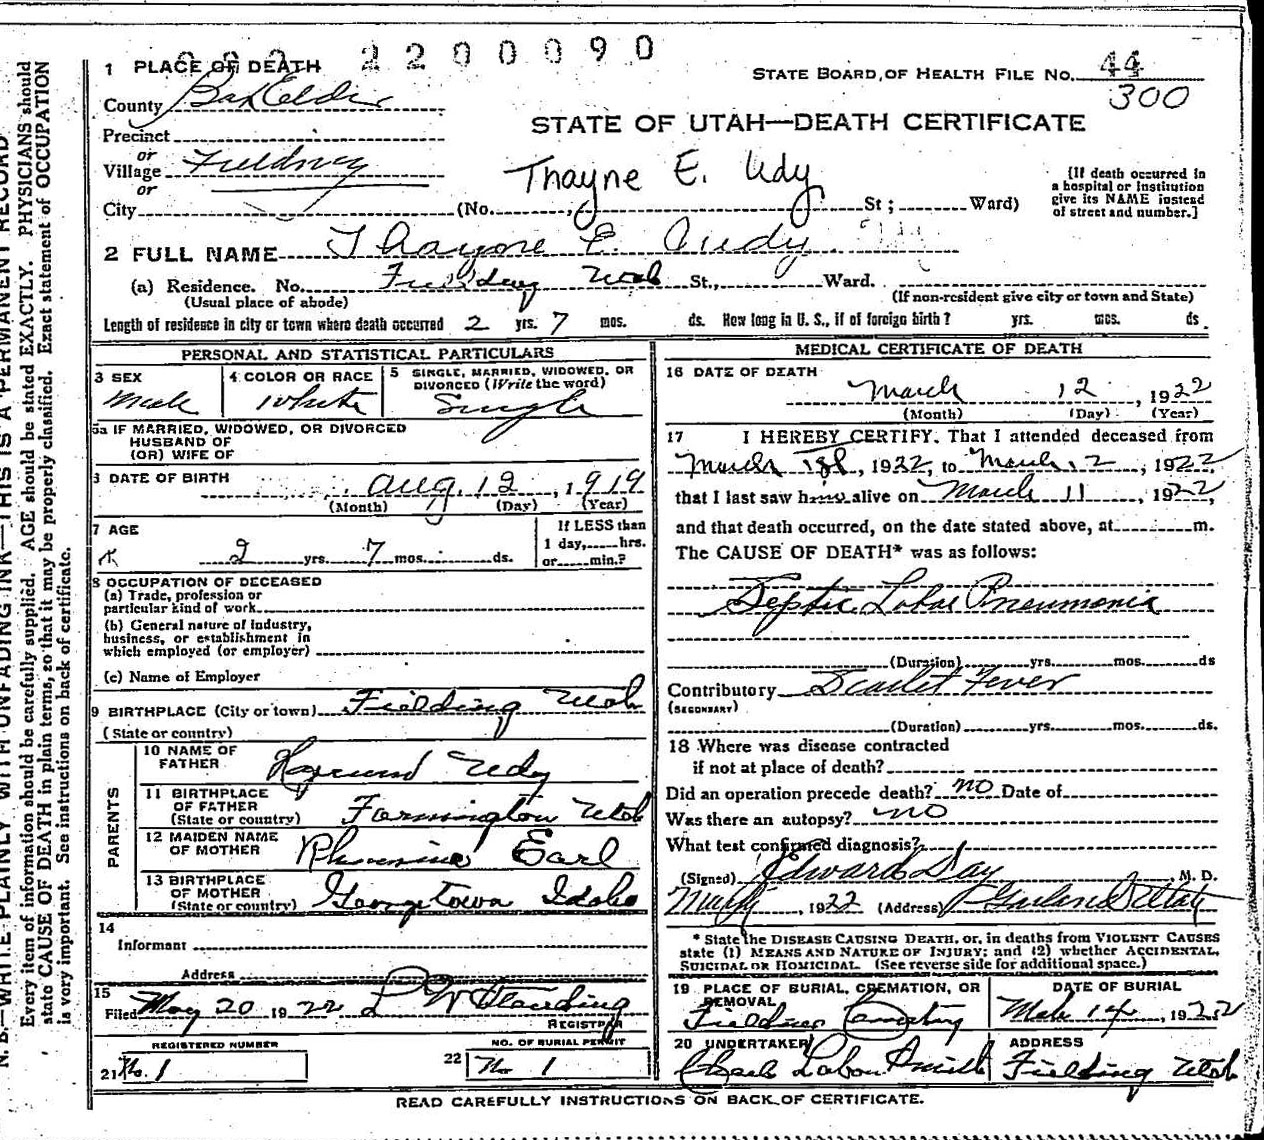 2200090
1 PLACE OF DEATH
STATE BOARD OF HEALTH FILE NO. 44
300
County Box Elder
STATE OF UTAH—DEATH CERTIFICATE
Precinct
or
Village Fielding
or
Thayne E. Udy
[If death occurred in a hospital or institution give its NAME instead of street and number.]
City (No. St; Ward)
2 FULL NAME Thayne E. Udy
(a) Residence. No. Fielding Utah St., Ward.
(Usual place of abode) (If non-resident give city or town and State)
Length of residence in city or town where death occurred 2 yrs. 7 mos. ds. How long in U. S., if of foreign birth? yrs. mos. ds.
PERSONAL AND STATISTICAL PARTICULARS
3 SEX Male
4 COLOR OR RACE White
5 SINGLE, MARRIED, WIDOWED, OR DIVORCED (Write the word) Single
5a IF MARRIED, WIDOWED, OR DIVORCED
HUSBAND OF
(OR) WIFE OF
DATE OF BIRTH Aug. 12, 1919
(Month) (Day) (Year)
7 AGE 2 yrs. 7 mos. ds.
If LESS than
1 day, hrs.
or min.?
8 OCCUPATION OF DECEASED
(a) Trade, profession or
particular kind of work
(b) General nature of industry,
business, or establishment in
which employed (or employer)
(c) Name of Employer
9 BIRTHPLACE (City or town) Fielding Utah
(State or country)
PARENTS
10 NAME OF FATHER Udy
11 BIRTHPLACE OF FATHER (State or country) Farmington Utah
12 MAIDEN NAME OF MOTHER Earl
13 BIRTHPLACE OF MOTHER (State or country) Georgetown Idaho
14
Informant
Address
15
Filed May 20 1922 L W
REGISTRAR
REGISTERED NUMBER
21 No. 1
NO. OF BURIAL PERMIT
22 No 1
MEDICAL CERTIFICATE OF DEATH
16 DATE OF DEATH
March 12, 1922
(Month) (Day) (Year)
17 I HEREBY CERTIFY, That I attended deceased from
March 1922, to March 12, 1922
that I last saw him alive on March 11, 1922,
and that death occurred, on the date stated above, at m.
The CAUSE OF DEATH* was as follows:
Septic Lobar Pneumonia
(Duration) yrs. mos. ds
Contributory Scarlet Fever
(SECONDARY)
(Duration) yrs. mos. ds.
18 Where was disease contracted
if not at place of death?
Did an operation precede death? no Date of
Was there an autopsy? no
What test confirmed diagnosis?
(Signed) Edward Day, M. D.
, 1922 (Address) Garland Utah
* State the DISEASE CAUSING DEATH, or, in deaths from VIOLENT CAUSES
state (1) MEANS AND NATURE OF INJURY; and (2) whether ACCIDENTAL,
SUICIDAL or HOMICIDAL. (See reverse side for additional space.)
19 PLACE OF BURIAL, CREMATION, OR REMOVAL
Fielding Cemetery
DATE OF BURIAL
Mch 14, 1922
20 UNDERTAKER
ADDRESS
Fielding Utah
READ CAREFULLY INSTRUCTIONS ON BACK OF CERTIFICATE.
N. B.—WRITE PLAINLY, WITH UNFADING INK—THIS IS A PERMANENT RECORD
Every item of information should be carefully supplied. AGE should be stated EXACTLY. PHYSICIANS should
state CAUSE OF DEATH in plain terms, so that it may be properly classified. Exact statement of OCCUPATION
is very important. See instructions on back of certificate.